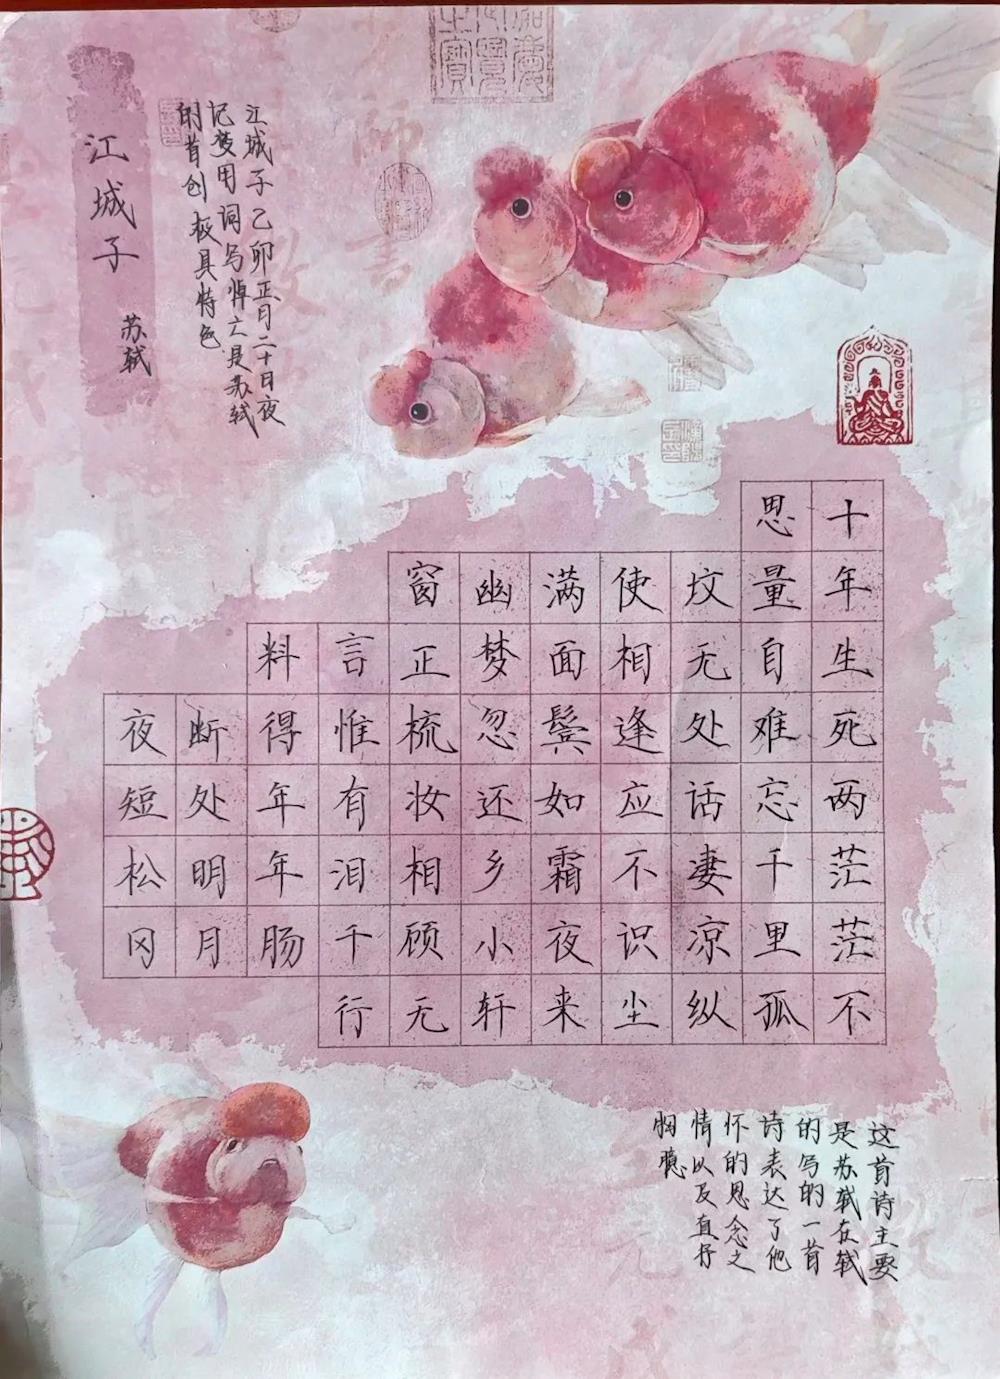 江城子
苏轼
江城子乙卯正月二十日夜
记梦用词写悼亡是苏轼
的首创极具特色
十年生死两茫茫不
思量自难忘千里孤
坟无处话凄凉纵
使相逢应不识尘
满面鬓如霜夜来
幽梦忽还乡小轩
窗正梳妆相顾无
言惟有泪千行
料得年年肠
断处明月
夜短松冈
这首诗主要
是苏轼在轼
的写的一首
诗表达了他
怀的思念之
情以及直抒
胸臆